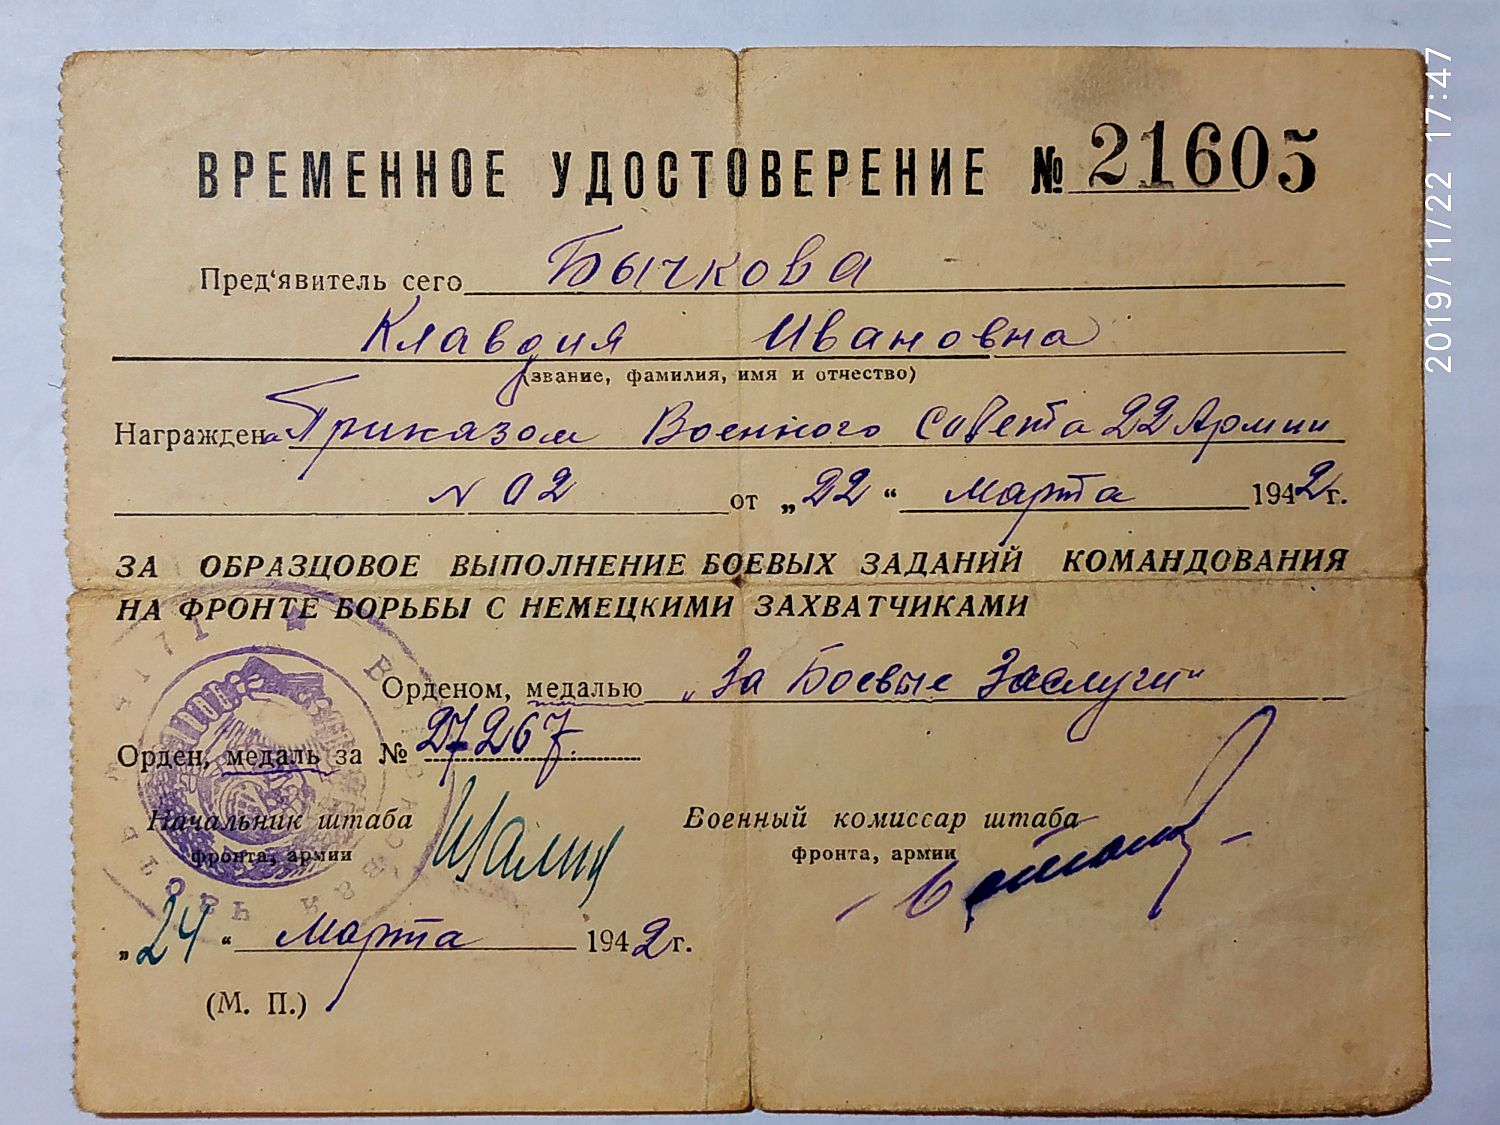 ВРЕМЕННОЕ УДОСТОВЕРЕНИЕ № 21605
Пред‘явитель сего Бычкова
Клавдия Ивановна
(звание, фамилия, имя и отчество)
Награжден а Приказом Военного Совета 22 Армии
N 02 от „22“ марта 1942 г.
ЗА ОБРАЗЦОВОЕ ВЫПОЛНЕНИЕ БОЕВЫХ ЗАДАНИЙ КОМАНДОВАНИЯ
НА ФРОНТЕ БОРЬБЫ С НЕМЕЦКИМИ ЗАХВАТЧИКАМИ
Орденом, медалью „За Боевые Заслуги“
Орден, медаль за № 27267.
Начальник штаба Военный комиссар штаба
фронта, армии фронта, армии
„24“ марта 1942 г.
(М. П.)
2019/11/22 17:47